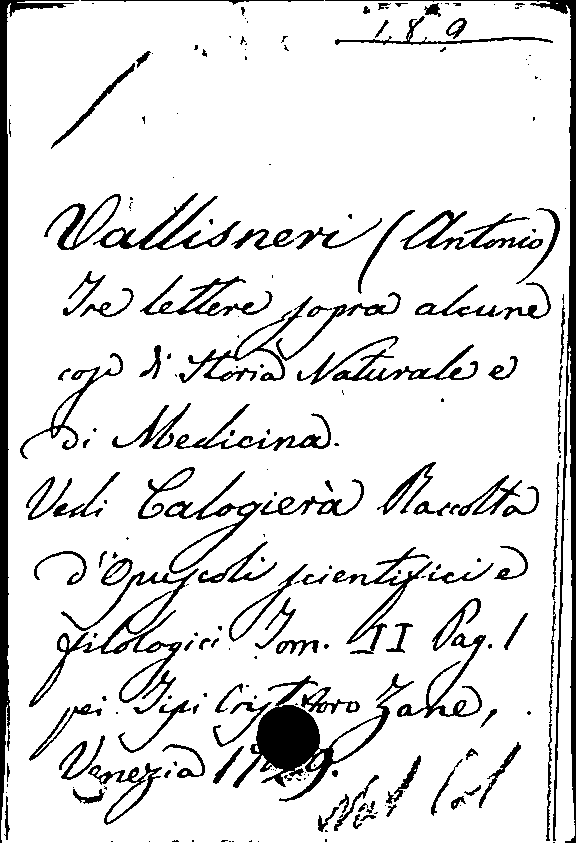 189
Vallisneri (Antonio)
Tre lettere sopra alcune
cose di Storia Naturale e
di Medicina.
Vedi Calogierà Raccolta
d'Opuscoli scientifici e
filologici Tom. II Pag. 1
pei Tipi Cristoforo Zane,
Venezia 1729.